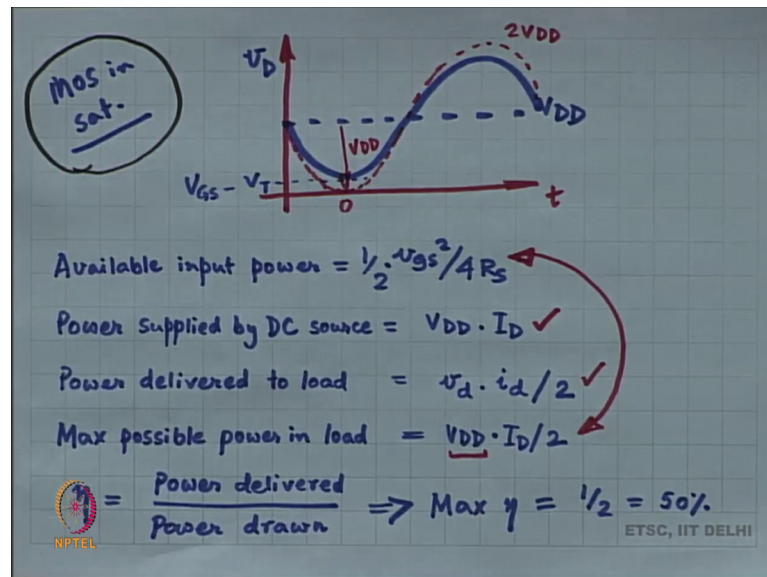 mos in
sat.
2VDD
v_D
VDD
VDD
V_GS - V_T
0
t
Available input power = 1/2 · v_gs²/4R_S
Power supplied by DC source = VDD · I_D ✓
Power delivered to load = v_d · i_d/2 ✓
Max possible power in load = VDD · I_D/2
η = Power delivered / Power drawn ⇒ Max η = 1/2 = 50%
NPTEL
ETSC, IIT DELHI